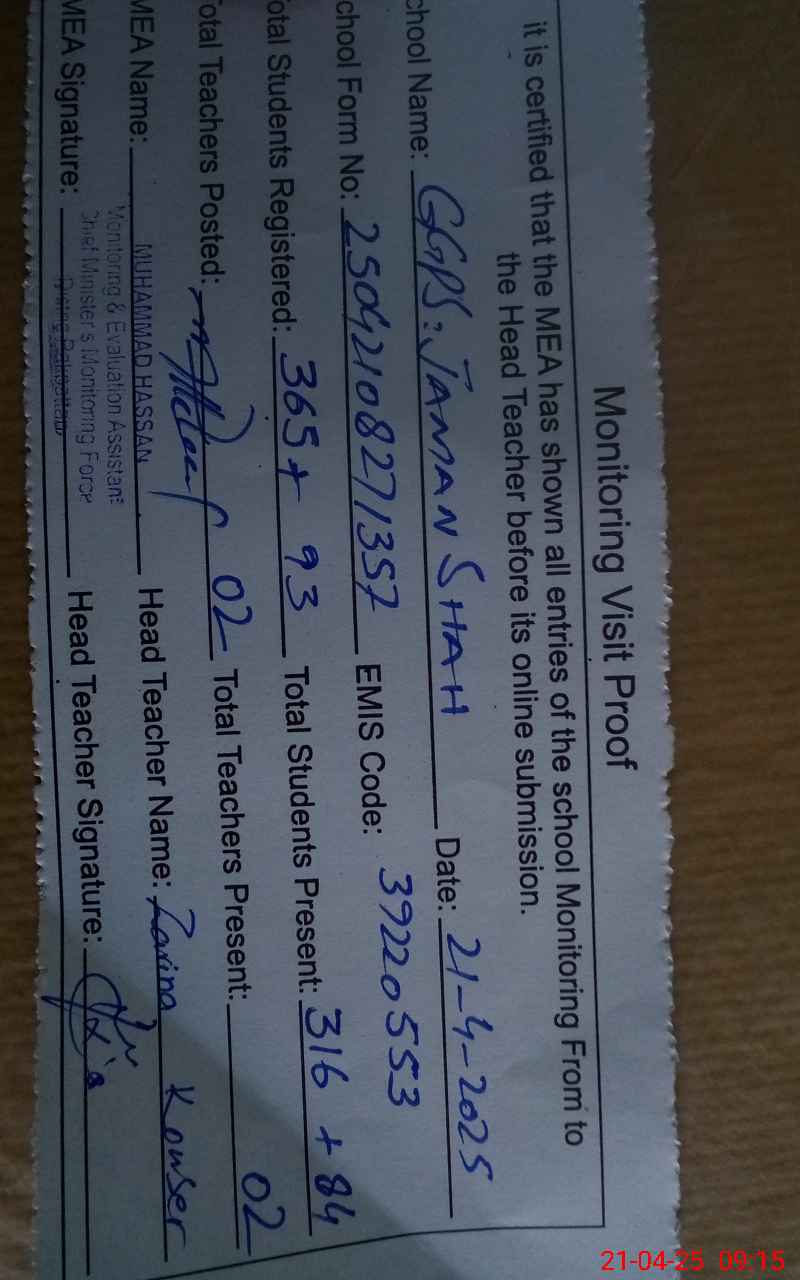 Monitoring Visit Proof
it is certified that the MEA has shown all entries of the school Monitoring From to
the Head Teacher before its online submission.
chool Name: GGPS: JAMAN SHAH Date: 21-4-2025
chool Form No: 25042108271357 EMIS Code: 39220553
otal Students Registered: 365 + 93 Total Students Present: 316 + 84
otal Teachers Posted: 02 Total Teachers Present: 02
MEA Name: MUHAMMAD HASSAN Head Teacher Name: Zarina Kowser
Monitoring & Evaluation Assistant
Chief Minister's Monitoring Force
MEA Signature: Head Teacher Signature:
21-04-25 09:15